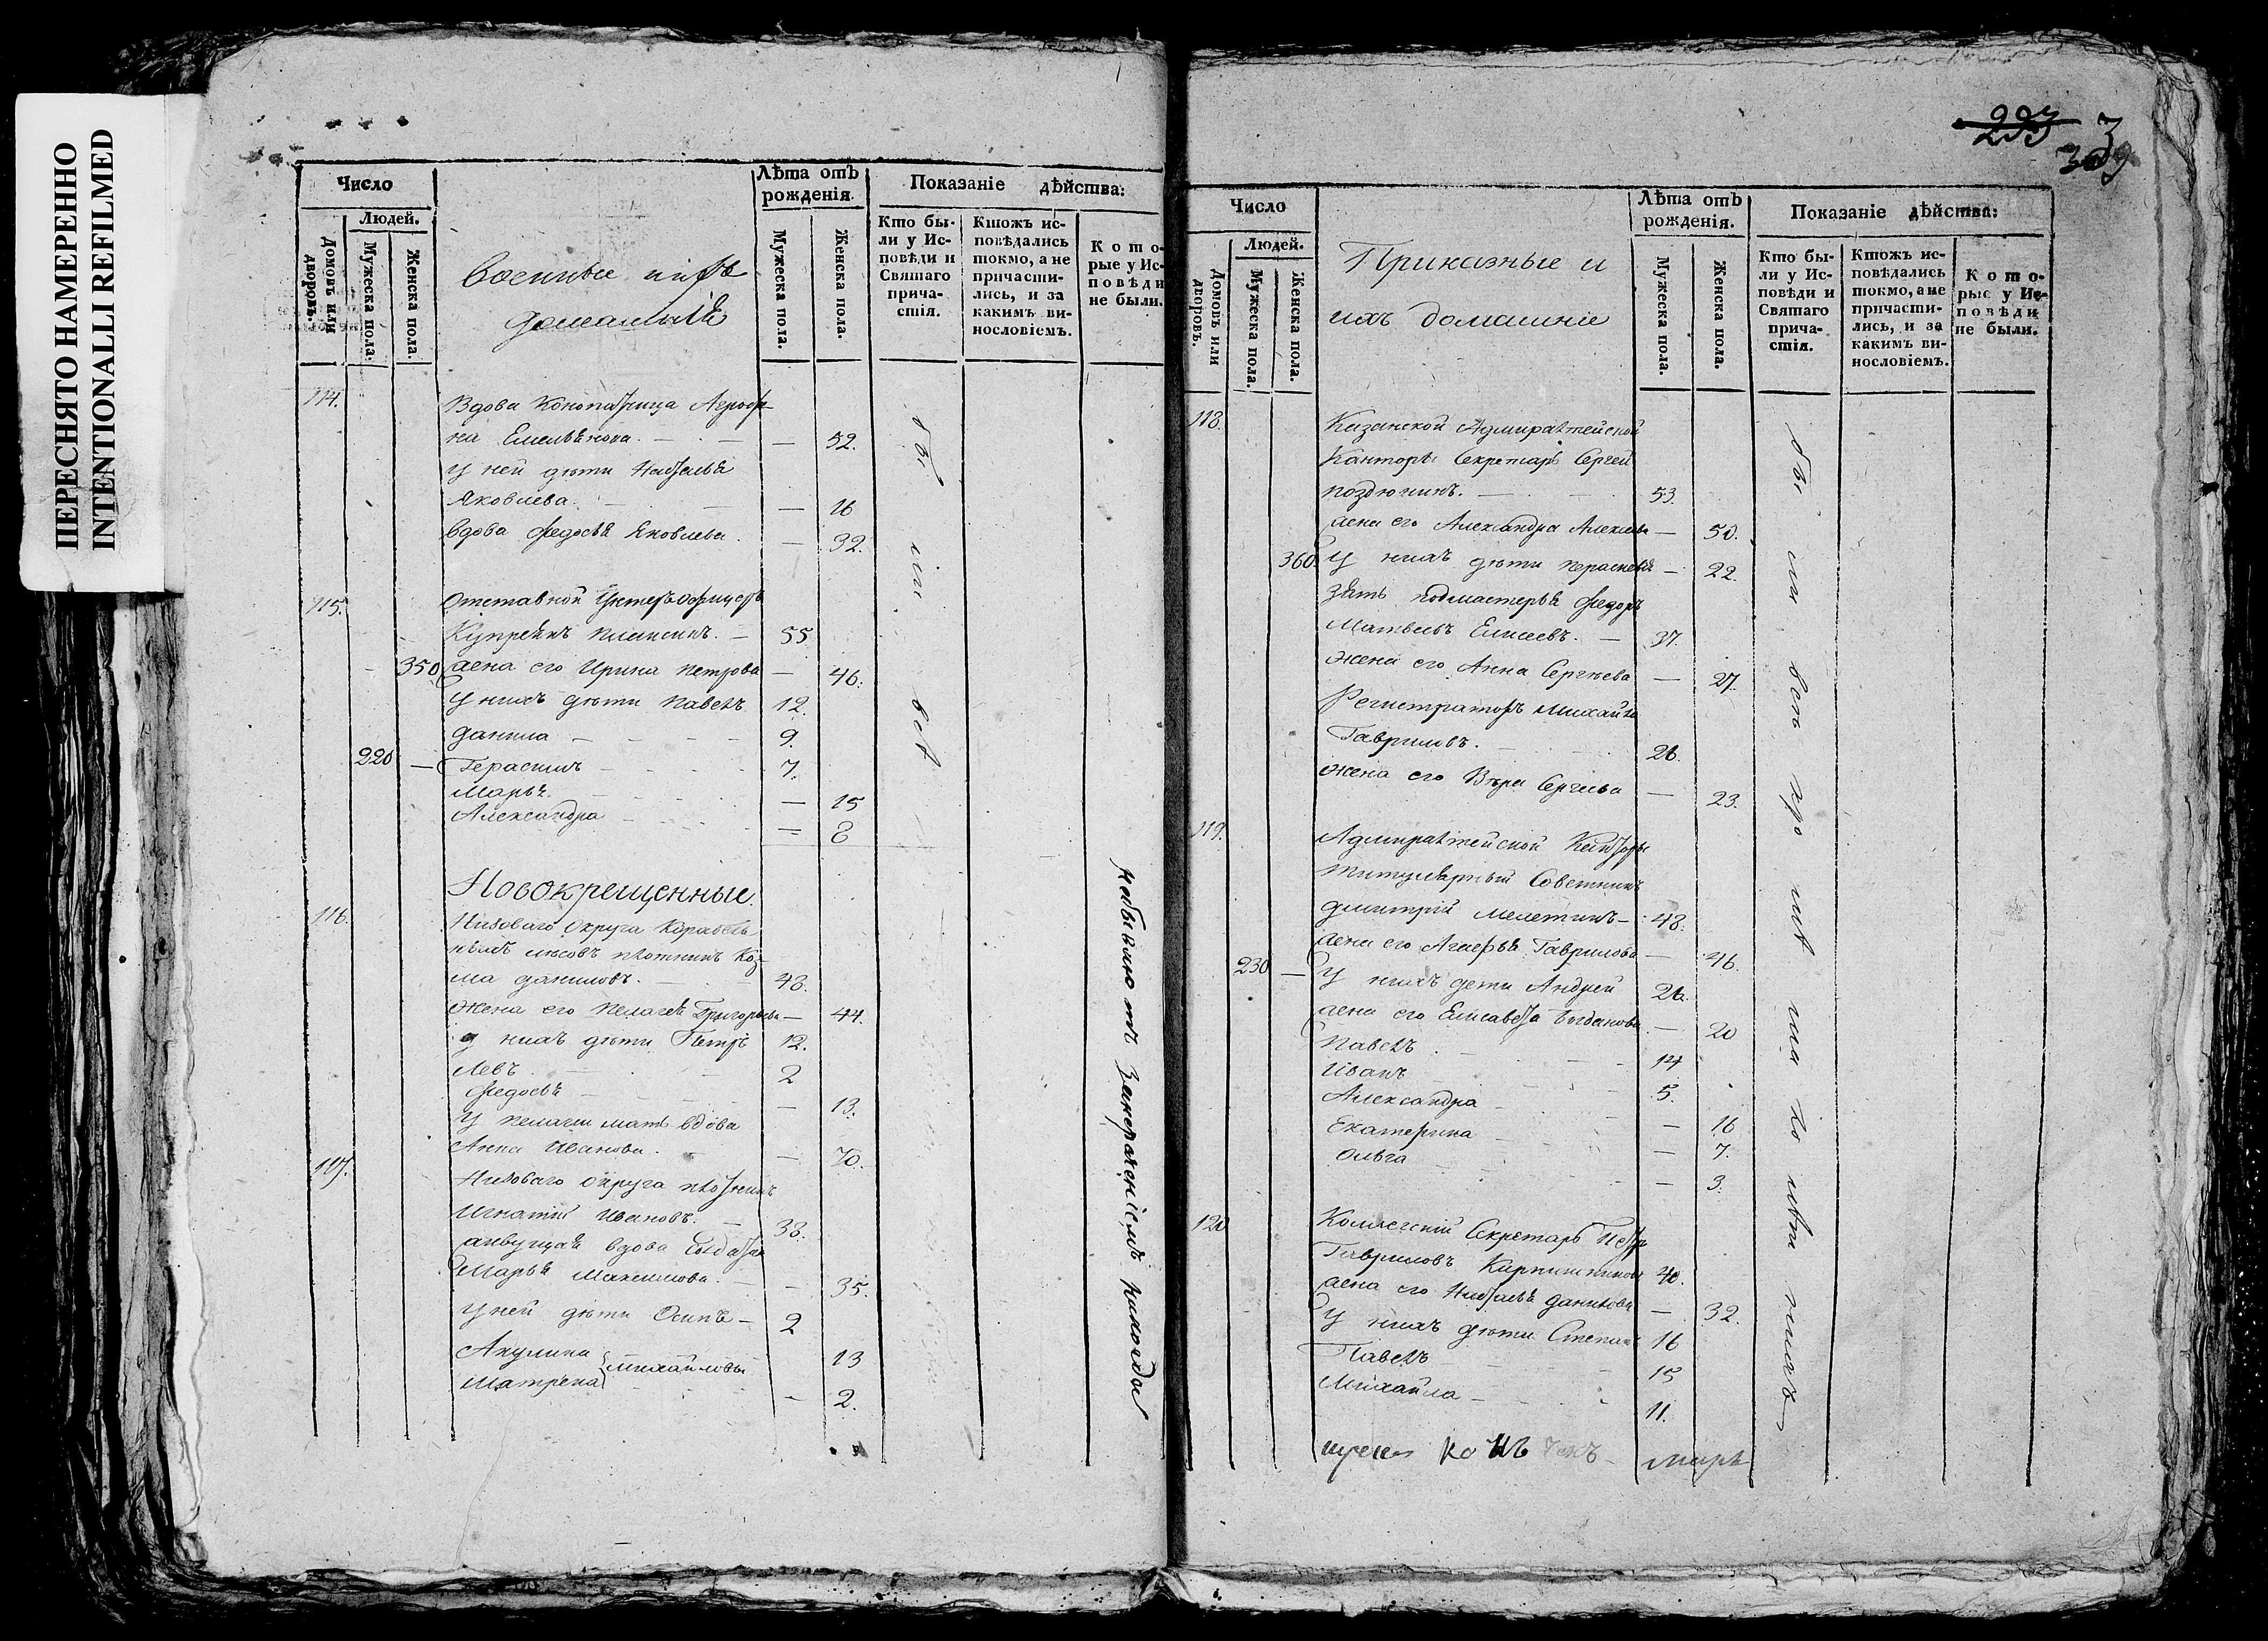 ПЕРЕСНЯТО НАМЕРЕННО
INTENTIONALLI REFILMED
Число
Людей.
Домовъ или дворовъ.
Мужеска пола.
Женска пола.
Военные и ихъ
домашніе
Лѣта отъ рожденія.
Мужеска пола.
Женска пола.
Показаніе дѣйства:
Кто бы-
ли у Ис-
повѣди и
Святаго
прича-
стія.
Ктожъ ис-
повѣдались
токмо, а не
причасти-
лись, и за
какимъ ви-
нословіемъ.
Кото-
рые у Ис-
повѣди
не были.
114. Вдова Конопатчица Агрофе-
на Емельянова. — 52.
у ней дѣти Наталья
Яковлева. — 16
вдова Федосья Яковлева. — 32.
115. Отставной Унтеръ офицеръ
Купреянъ 55
350 жена его Ирина Петрова — 46.
у нихъ дѣти Павелъ 12.
Данила 9.
220 — Герасимъ 7.
Марья — 15
Александра — 8
Новокрещенные.
116. Низоваго Округа Корабель
ныхъ лѣсовъ плотникъ Коз-
ма Даниловъ. 48.
жена его Пелагея Григорьева — 44.
у нихъ дѣти Петръ 12.
Левъ 2
Федосья — 13.
у Пелагеи мать вдова
Анна Иванова. — 70.
117. Низоваго округа плотникъ
Игнатій Ивановъ. 33.
живущая вдова Солдатка
Марья Максимова. — 35.
у ней дѣти Осипъ — 2
Акулина 13
Михайловы
Матрена — 2.
бы ли всѣ
небывлю тъ
293
309
3
Число
Людей.
Домовъ или дворовъ.
Мужеска пола.
Женска пола.
Приказные и
ихъ домашніе
Лѣта отъ рожденія.
Мужеска пола.
Женска пола.
Показаніе дѣйства:
Кто бы-
ли у Ис-
повѣди и
Святаго
прича-
стія.
Ктожъ ис-
повѣдались
токмо, а не
причасти-
лись, и за
какимъ ви-
нословіемъ.
Кото-
рые у Ис-
повѣди
не были.
118. Казанской Адмиралтейской
Канторы Секретарь Сергей
Поздюнинъ. 53.
жена его Александра Алексеева — 50.
360. у нихъ дѣти Парасковья — 22.
зять подмастерья Федоръ
Матвеевъ Елисеевъ. 37.
жена его Анна Сергѣева — 27.
Регистраторъ Михайла
Гавриловъ. 26.
жена его Вѣра Сергеева — 23.
119. Адмиралтейской Канторы
Титулярный Советникъ
Дмитрій Мелетинъ — 48.
жена его Агафья Гаврилова — 46.
230 — у нихъ дети Андрей 26.
жена его Елисавета Богданова — 20
Павелъ 14
Иванъ 5.
Александра — 16
Екатерина — 7.
Ольга — 3.
120 Коллегскій Секретарь Петръ
Гавриловъ 40.
жена его Наталья Данилова — 32.
у нихъ дѣти Степанъ 16
Павелъ 15
Михайла 11.
бы ли всѣ